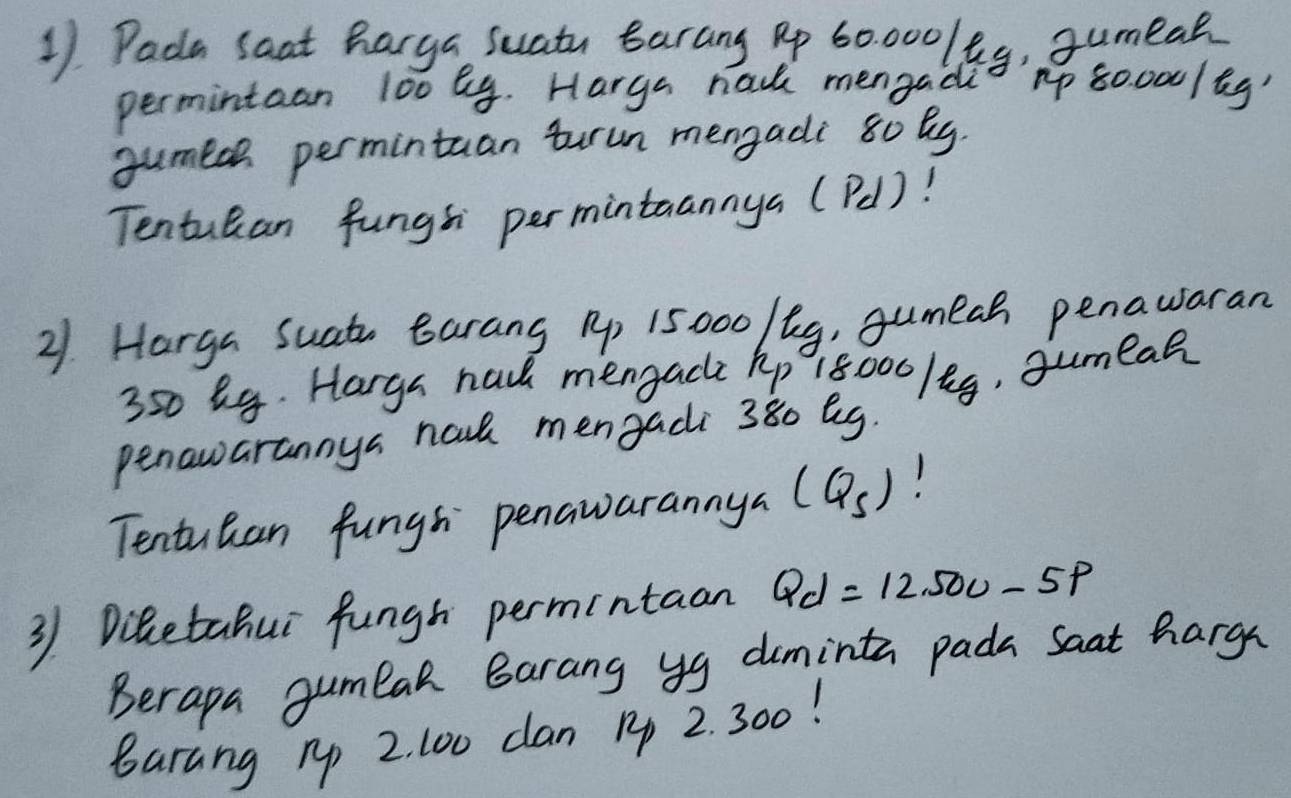 1). Pada saat harga suatu barang Rp 60.000/kg, jumlah
permintaan 100 kg. Harga naik menjadi Rp 80.000/kg,
jumlah permintaan turun menjadi 80 kg.
Tentukan fungsi permintaannya (Pd)!
2). Harga suatu barang Rp 15.000/kg, jumlah penawaran
350 kg. Harga naik menjadi Rp 18.000/kg, jumlah
penawarannya naik menjadi 380 kg.
Tentukan fungsi penawarannya (Qs)!
3). Diketahui fungsi permintaan Qd = 12.500 - 5P
Berapa jumlah barang yg diminta pada saat harga
barang Rp 2.100 dan Rp 2.300!